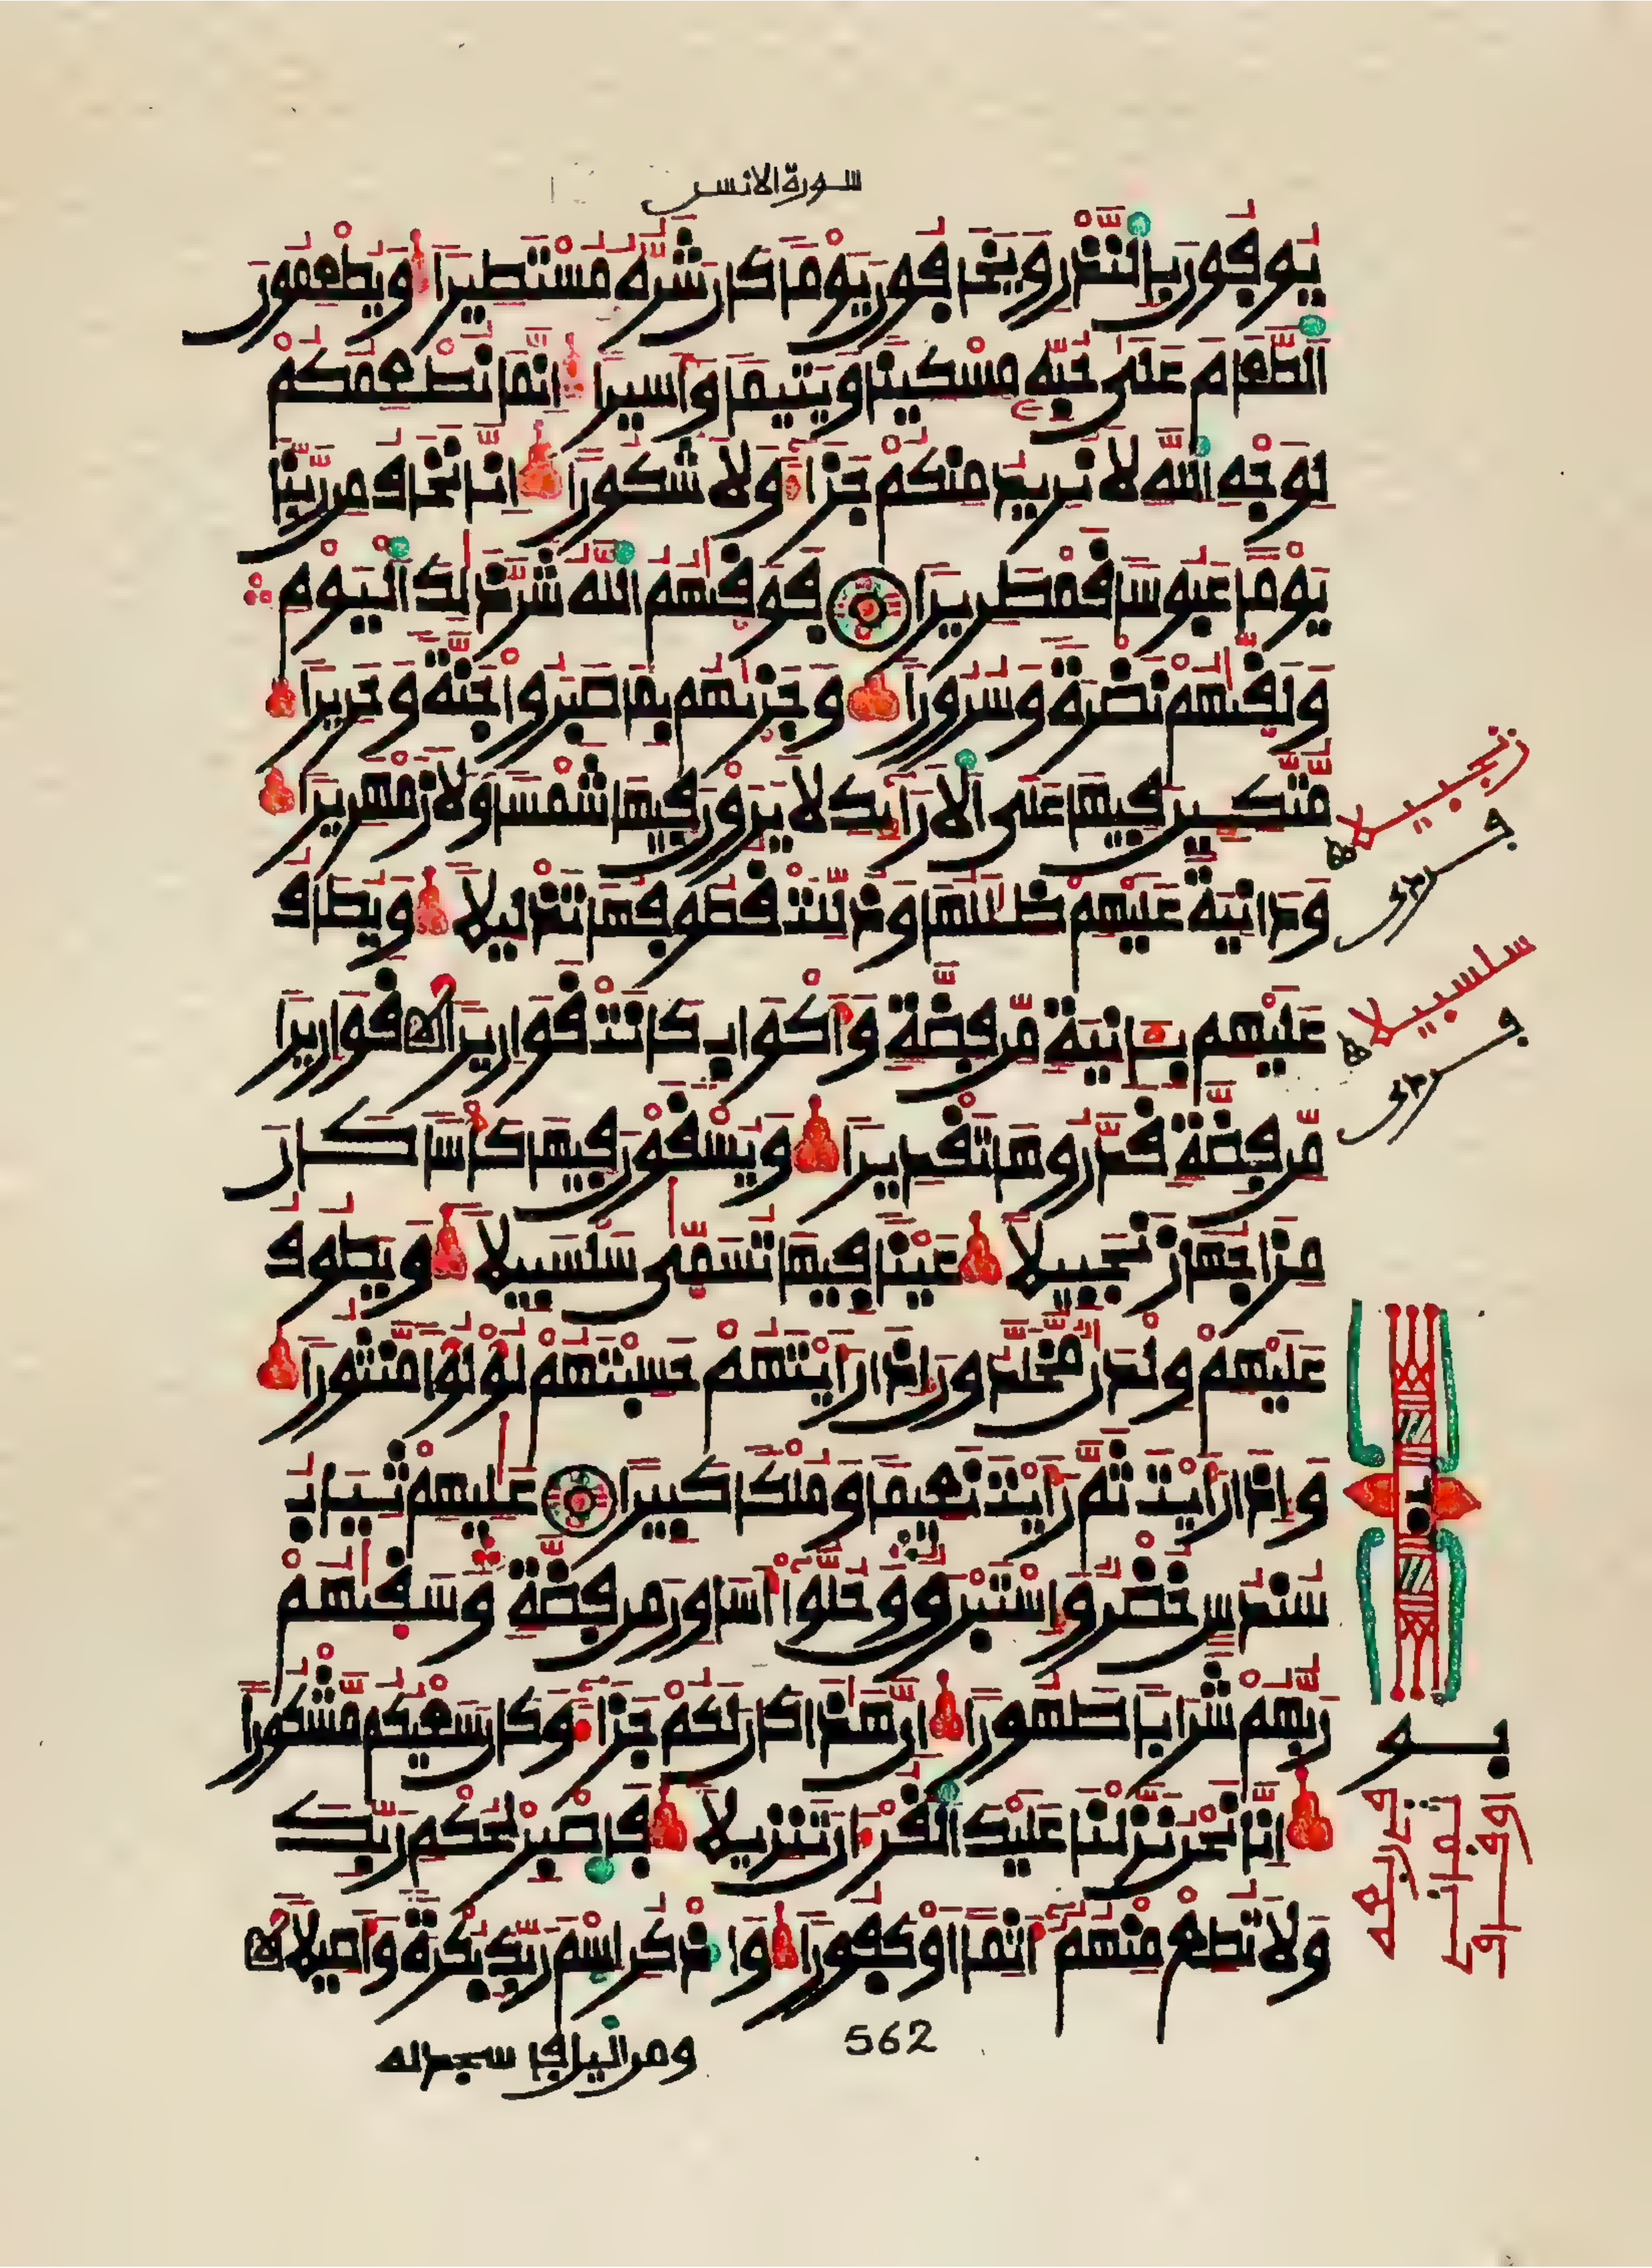 سورة الانسن
يُوفُونَ بِالنَّذْرِ وَيَخَافُونَ يَوْمًا كَانَ شَرُّهُ مُسْتَطِيرًا وَيُطْعِمُونَ
اَلطَّعَامَ عَلَىٰ حُبِّهِ مِسْكِينًا وَيَتِيمًا وَأَسِيرًا إِنَّمَا نُطْعِمُكُمْ
لِوَجْهِ اِللَّهِ لَا نُرِيدُ مِنكُمْ جَزَآءً وَلَا شُكُورًا إِنَّا نَخَافُ مِن رَّبِّنَا
يَوْمًا عَبُوسًا قَمْطَرِيرًا فَوَقَىٰهُمُ اُللَّهُ شَرَّ ذَٰلِكَ اَلْيَوْمِ
وَلَقَّىٰهُمْ نَضْرَةً وَسُرُورًا وَجَزَىٰهُم بِمَا صَبَرُواْ جَنَّةً وَحَرِيرًا
مُّتَّكِـِٕينَ فِيهَا عَلَى اَلَارَآئِكِ لَا يَرَوْنَ فِيهَا شَمْسًا وَلَا زَمْهَرِيرًا
وَدَانِيَةً عَلَيْهِمْ ظِلَٰلُهَا وَذُلِّلَتْ قُطُوفُهَا تَذْلِيلًا وَيُطَافُ
عَلَيْهِم بِـَٔانِيَةٍ مِّن فِضَّةٍ وَأَكْوَابٍ كَانَتْ قَوَارِيرًا قَوَارِيرًا
مِّن فِضَّةٍ قَدَّرُوهَا تَقْدِيرًا وَيُسْقَوْنَ فِيهَا كَأْسًا كَانَ
مِزَاجُهَا زَنجَبِيلًا عَيْنًا فِيهَا تُسَمَّىٰ سَلْسَبِيلًا وَيَطُوفُ
عَلَيْهِمْ وِلْدَٰنٌ مُّخَلَّدُونَ إِذَا رَأَيْتَهُمْ حَسِبْتَهُمْ لُؤْلُؤًا مَّنثُورًا
وَإِذَا رَأَيْتَ ثَمَّ رَأَيْتَ نَعِيمًا وَمُلْكًا كَبِيرًا عَٰلِيهِمْ ثِيَابُ
سُندُسٍ خُضْرٌ وَإِسْتَبْرَقٌ وَحُلُّواْ أَسَاوِرَ مِن فِضَّةٍ وَسَقَىٰهُمْ
رَبُّهُمْ شَرَابًا طَهُورًا إِنَّ هَٰذَا كَانَ لَكُمْ جَزَآءً وَكَانَ سَعْيُكُم مَّشْكُورًا
إِنَّا نَحْنُ نَزَّلْنَا عَلَيْكَ اَلْقُرْءَانَ تَنزِيلًا فَاصْبِرْ لِحُكْمِ رَبِّكَ
وَلَا تُطِعْ مِنْهُمُ ءَاثِمًا أَوْ كَفُورًا وَاذْكُرِ اِسْمَ رَبِّكَ بُكْرَةً وَأَصِيلًا
562
ومن اليل فاسجد له
زنجبيلا
سلسبيلا